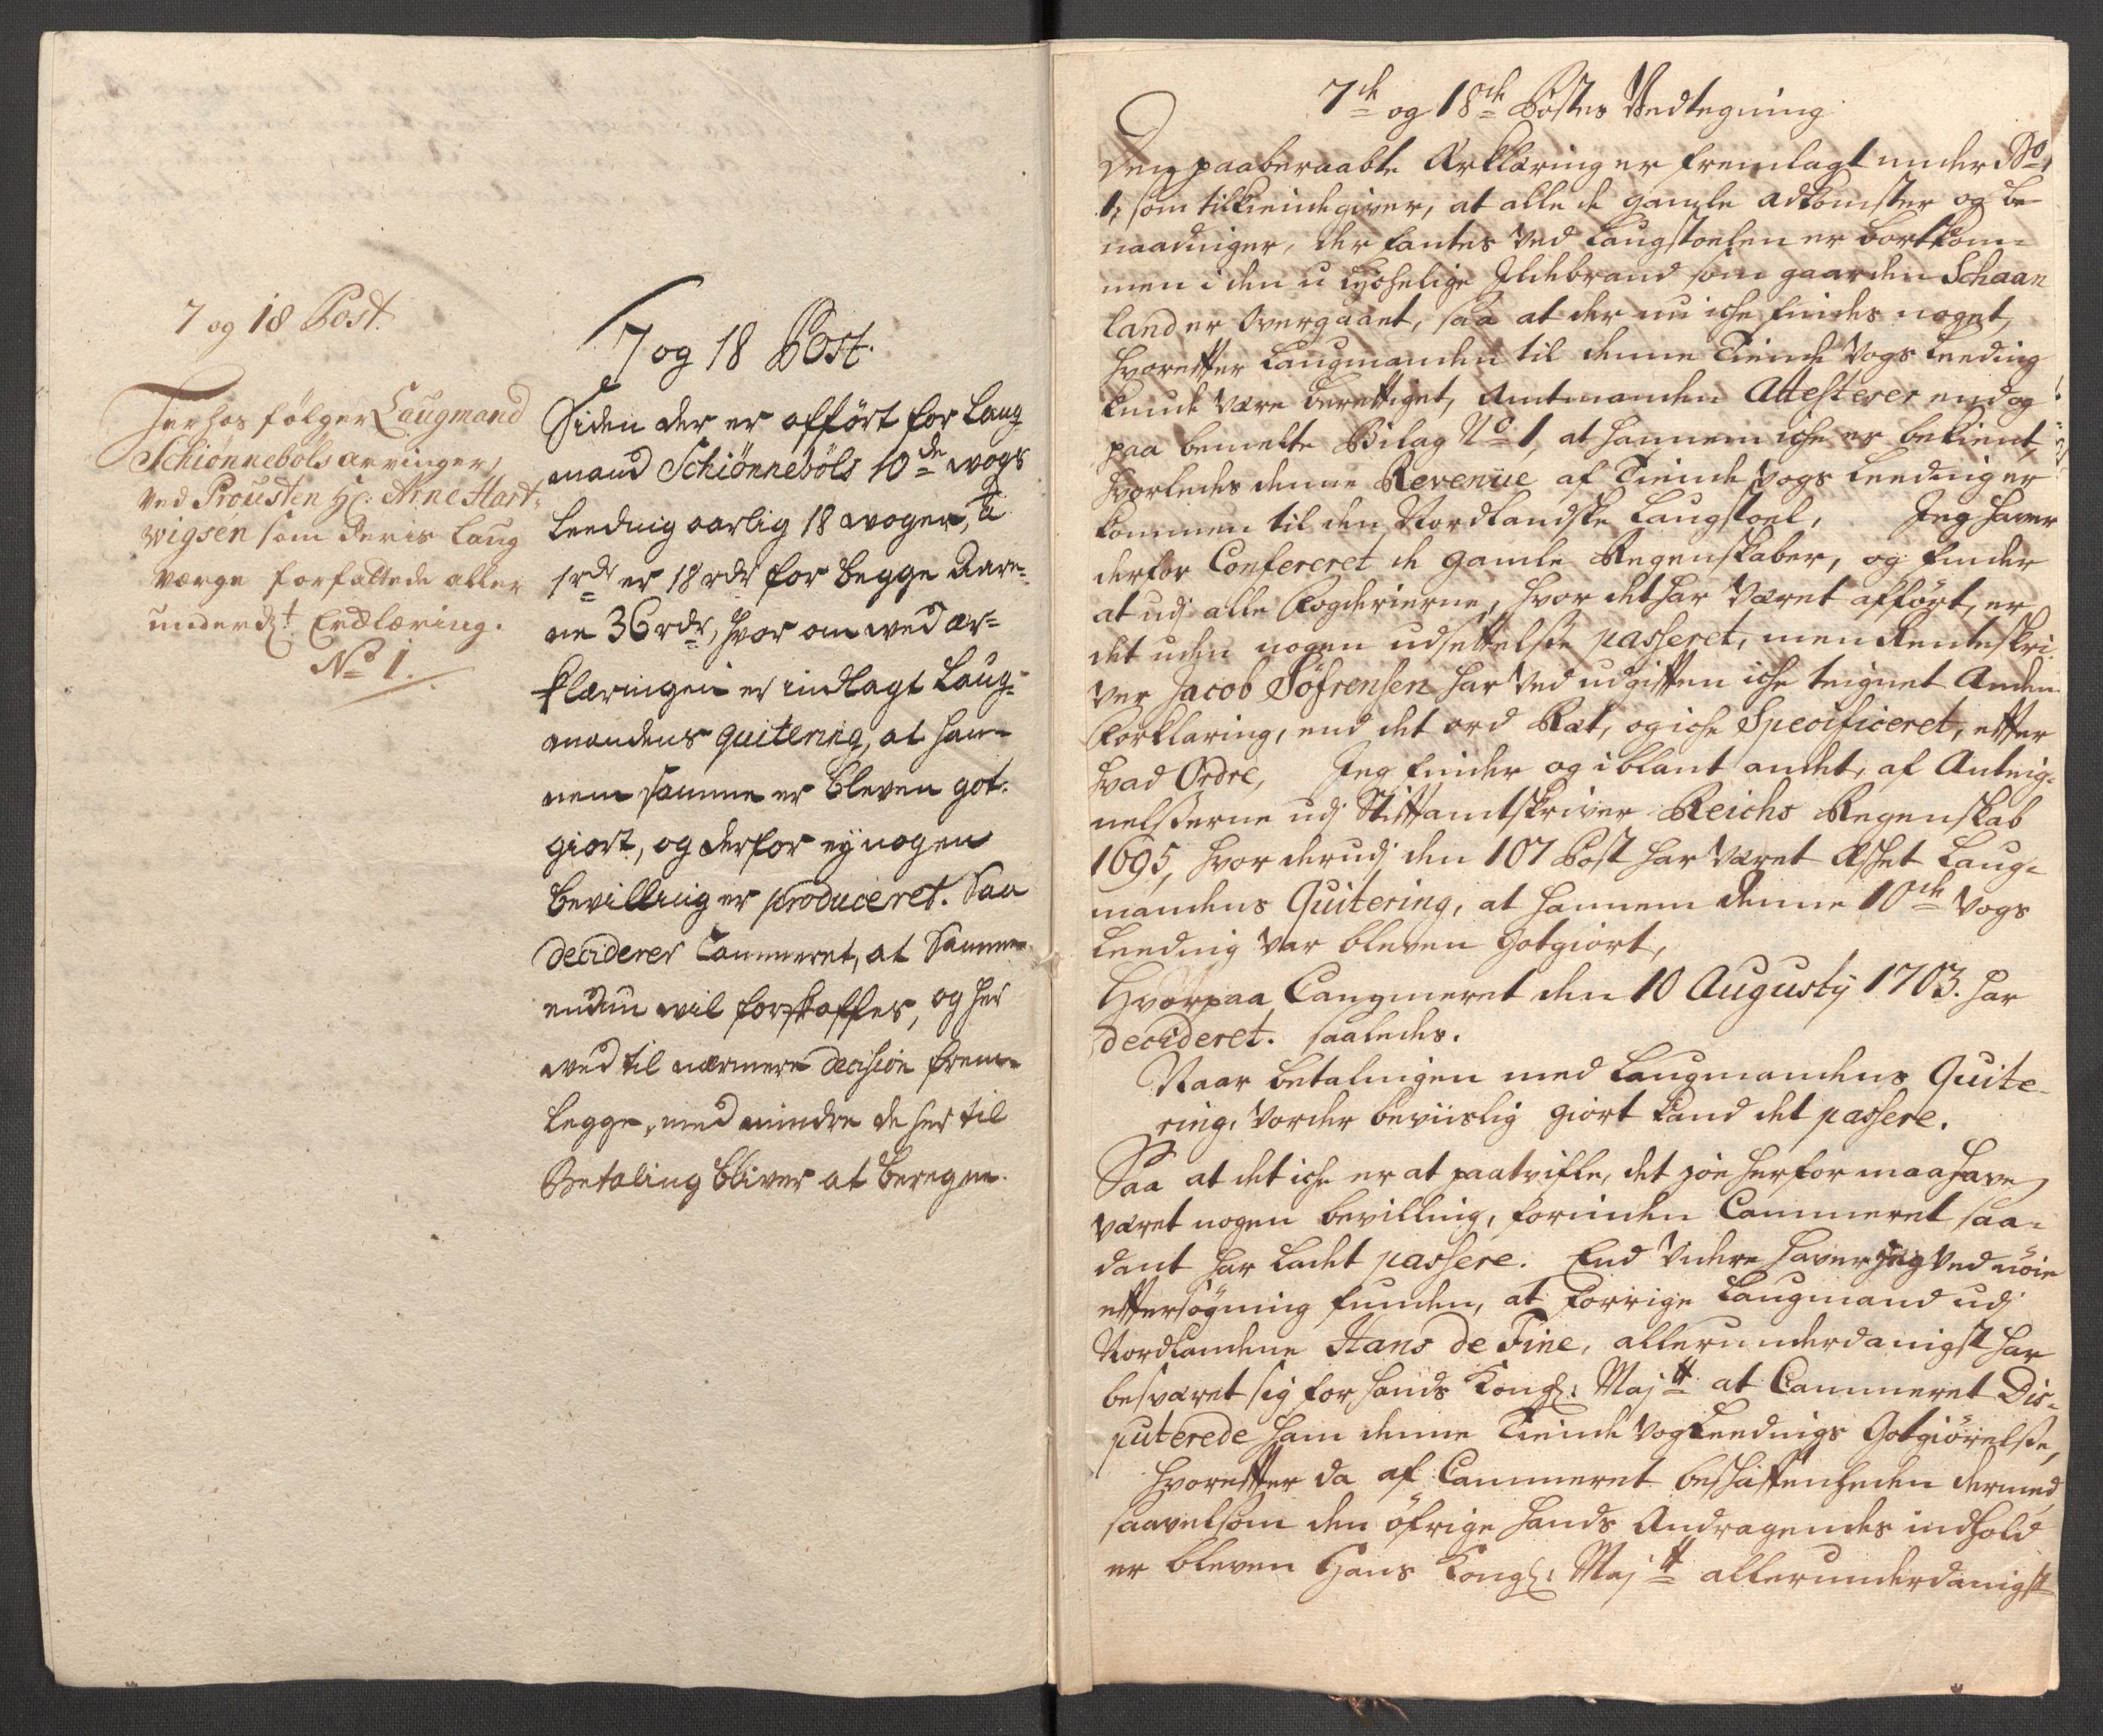 7 og 18 Post.
Herhos følger Laugmand
Schiønnebøls arvinger,
ved Prousten Hr: Arne Hart-
wigsen som deris Laug
værge forfattede aller
underd:t Erclæring.
No 1.
7 og 18 Post.
Siden der er afført for Laug
mand Schiönneböls 10de wogs
Leeding aarlig 18 woger, à
1 rdr er 18 rdr for begge Aare-
ne 36 rdr, hvor om wed er-
klæringen er indlagt Laug-
mandens quitering, at han-
nem samme er bleven got-
giort, og derfor ey nogen
bevilling er produceret. Saa
deciderer Cammeret, at Samme
endnu wil forskaffes, og her
wed til nærmere decision frem-
legge, med mindre de her til
Betaling bliver at beregne.
7de og 18de Postes Vedtegning
Den paaberaabte Erklæring er fremlagt under No
1, som tilkiendegiver, at alle de gamle adkomster og be-
naadniger, der fantes ved Laugstoelen er bortkom-
men i den u lychelige Ildebrand som gaarden Schaan
land er overgaaet, saa at der nu iche findes noget,
hvorefter Laugmanden til denne Tiende Vogs Leeding
kunde være berettiget, Amtmanden Attesterer end og
paa bemelte Bilag No 1, at hannem iche er bekient,
hvorledes denne Revenüe af Tiende Vogs Leeding er
kommen til den Nordlandske Laugstoel, Jeg haver
derfor Confereret de gamle Regenskaber, og finder
at udj alle Fogderierne, hvor det har været afført, er
det uden nogen udsettelse passeret, men Renteskri-
ver Jacob Söfrensen har ved udgiften iche teignet Anden
Forklaring, end det ord Ræt, og iche Specificeret, efter
hvad Ordre, Jeg finder og iblant andet, af Anteig-
nelserne udj Stiftamtskriver Reichs Regenskab
1695, hvor derudj den 107 Post har været Esket Laug-
mandens Quitering, at hannem denne 10de Vogs
Leeding var bleven Gotgiort,
Hvorpaa Cammeret den 10 Augustij 1703. har
decideret. saaledes.
Naar betalingen med Laugmandens Quite-
ring, vorder beviislig giort kand det passere.
Saa at det iche er at paatvifle, det joe herfor maa have
været nogen bevilling, forinden Cammeret saa-
dant har ladet passere. End videre haver jeg ved nöie
eftersögning funden, at forrige Laugmand udj
Nordlandene Hans de Fine, allerunderdanigst har
besværet sig for Hands Kongl: Maj:tt at Cammeret Dis-
puterede ham denne Tiende Vog Leedings Gotgiörelse,
hvorefter da af Cammeret beskaffenheden dermed
saavelsom den öfrige hands Andragendes indhold
er bleven Hans Kongl: Maj:tt allerunderdanigst